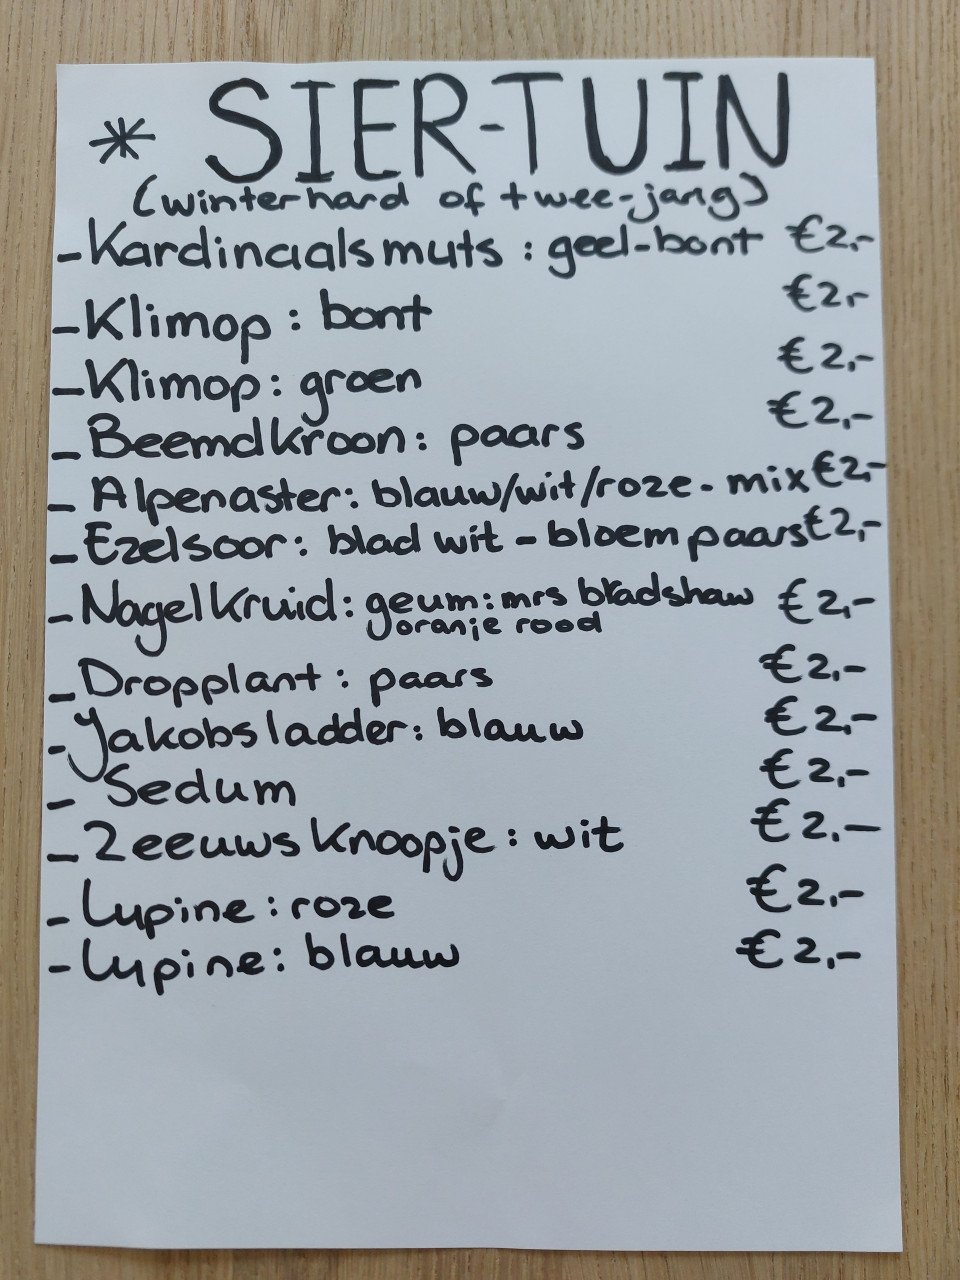 * SIER-TUIN
(winterhard of twee-jang)
- Kardinaalsmuts : geel-bont €2,-
- Klimop : bont €2,-
- Klimop : groen €2,-
- Beemdkroon : paars €2,-
- Alpenaster : blauw/wit/roze - mix €2,-
- Ezelsoor : blad wit - bloem paars €2,-
- Nagelkruid : geum : mrs bradshaw €2,-
oranje rood
- Dropplant : paars €2,-
- Jakobsladder : blauw €2,-
- Sedum €2,-
- Zeeuws Knoopje : wit €2,-
- Lupine : roze €2,-
- Lupine : blauw €2,-